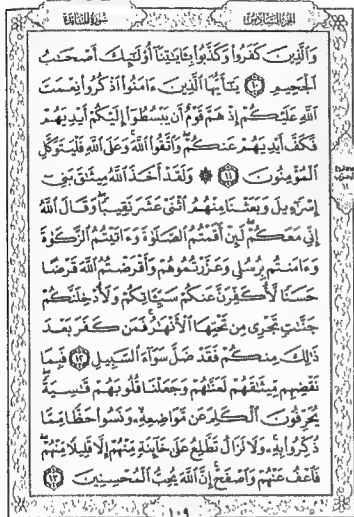 الجزء السادس سورة المائدة
وَالَّذِينَ كَفَرُوا۟ وَكَذَّبُوا۟ بِـَٔايَـٰتِنَآ أُو۟لَـٰٓئِكَ أَصْحَـٰبُ
ٱلْجَحِيمِ ١٠ يَـٰٓأَيُّهَا ٱلَّذِينَ ءَامَنُوا۟ ٱذْكُرُوا۟ نِعْمَتَ
ٱللَّهِ عَلَيْكُمْ إِذْ هَمَّ قَوْمٌ أَن يَبْسُطُوٓا۟ إِلَيْكُمْ أَيْدِيَهُمْ
فَكَفَّ أَيْدِيَهُمْ عَنكُمْ وَٱتَّقُوا۟ ٱللَّهَ وَعَلَى ٱللَّهِ فَلْيَتَوَكَّلِ
ٱلْمُؤْمِنُونَ ١١ ۞ وَلَقَدْ أَخَذَ ٱللَّهُ مِيثَـٰقَ بَنِىٓ
إِسْرَٰٓءِيلَ وَبَعَثْنَا مِنْهُمُ ٱثْنَىْ عَشَرَ نَقِيبًا وَقَالَ ٱللَّهُ
إِنِّى مَعَكُمْ لَئِنْ أَقَمْتُمُ ٱلصَّلَوٰةَ وَءَاتَيْتُمُ ٱلزَّكَوٰةَ
وَءَامَنتُم بِرُسُلِى وَعَزَّرْتُمُوهُمْ وَأَقْرَضْتُمُ ٱللَّهَ قَرْضًا
حَسَنًا لَّأُكَفِّرَنَّ عَنكُمْ سَيِّـَٔاتِكُمْ وَلَأُدْخِلَنَّكُمْ
جَنَّـٰتٍ تَجْرِى مِن تَحْتِهَا ٱلْأَنْهَـٰرُ فَمَن كَفَرَ بَعْدَ
ذَٰلِكَ مِنكُمْ فَقَدْ ضَلَّ سَوَآءَ ٱلسَّبِيلِ ١٢ فَبِمَا
نَقْضِهِم مِّيثَـٰقَهُمْ لَعَنَّـٰهُمْ وَجَعَلْنَا قُلُوبَهُمْ قَـٰسِيَةً
يُحَرِّفُونَ ٱلْكَلِمَ عَن مَّوَاضِعِهِۦ وَنَسُوا۟ حَظًّا مِّمَّا
ذُكِّرُوا۟ بِهِۦ وَلَا تَزَالُ تَطَّلِعُ عَلَىٰ خَآئِنَةٍ مِّنْهُمْ إِلَّا قَلِيلًا مِّنْهُمْ
فَٱعْفُ عَنْهُمْ وَٱصْفَحْ إِنَّ ٱللَّهَ يُحِبُّ ٱلْمُحْسِنِينَ ١٣
١٠٩